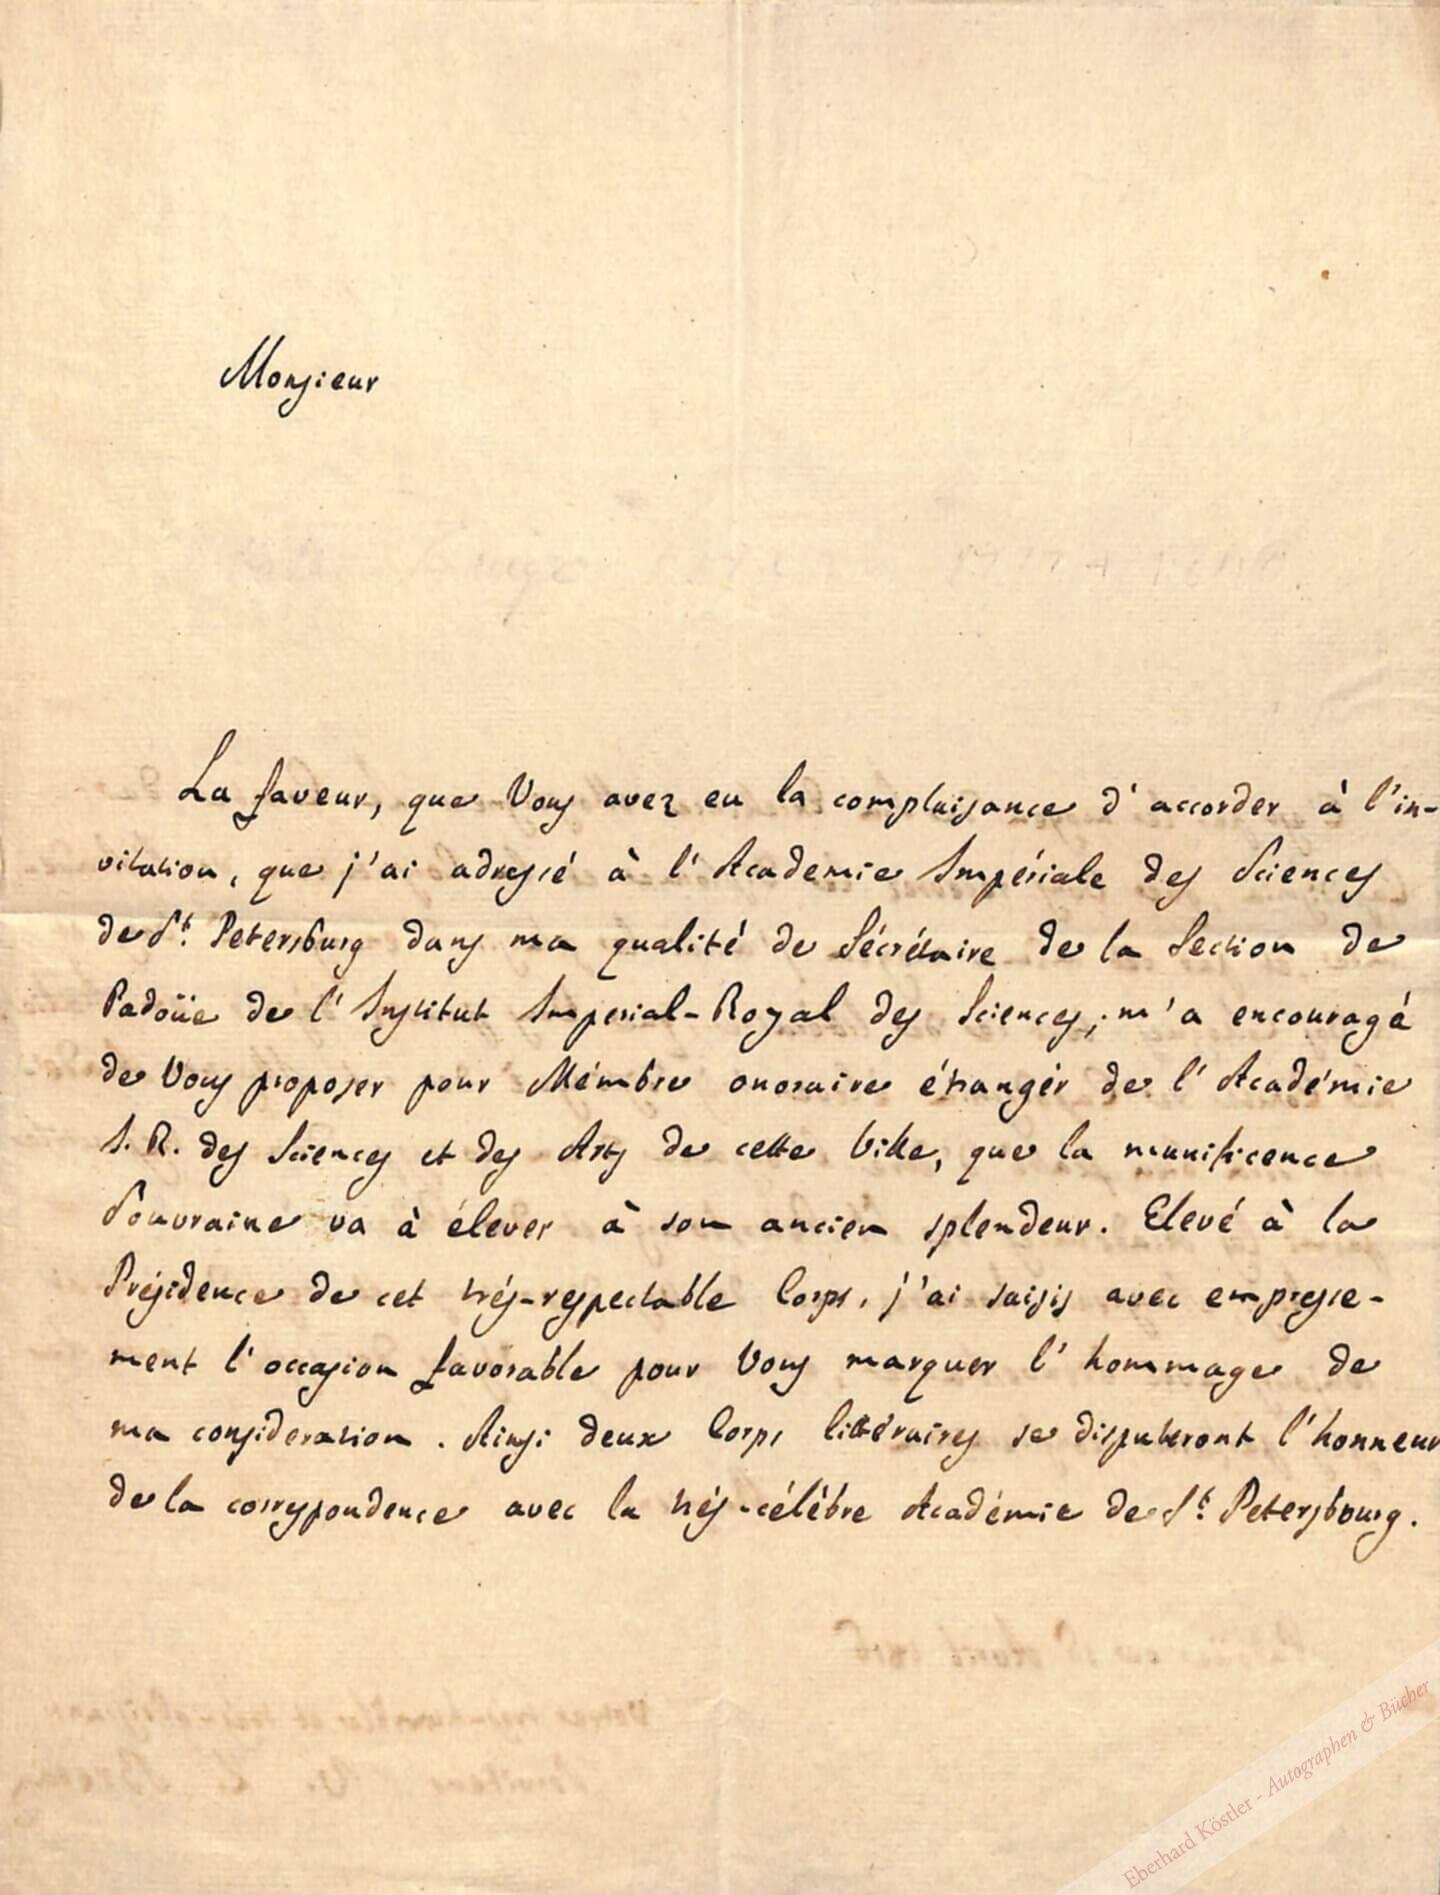 Monsieur
La faveur, que Vous avez eu la complaisance d'accorder à l'in-
vitation, que j'ai adressé à l'Academie Impériale des Sciences
de St. Petersburg dans ma qualité de Sécrétaire de la Section de
Padoüe de l'Institut Imperial-Royal des Sciences, m'a encouragé
de Vous proposer pour Mémbre onoraire étrangér de l'Académie
I. R. des Sciences et des Arts de cette Ville, que la munificence
Souvraine va à élever à son ancien splendeur. Elevé à la
Présidence de cet trés-respectable Corps, j'ai saisis avec empresse-
ment l'occasion favorable pour Vous marquer l'hommage de
ma consideration. Ainsi deux Corps littéraires se disputeront l'honneur
de la correspondence avec la trés-célébre Académie de St. Petersbourg.
Eberhard Köstler - Autographen & Bücher